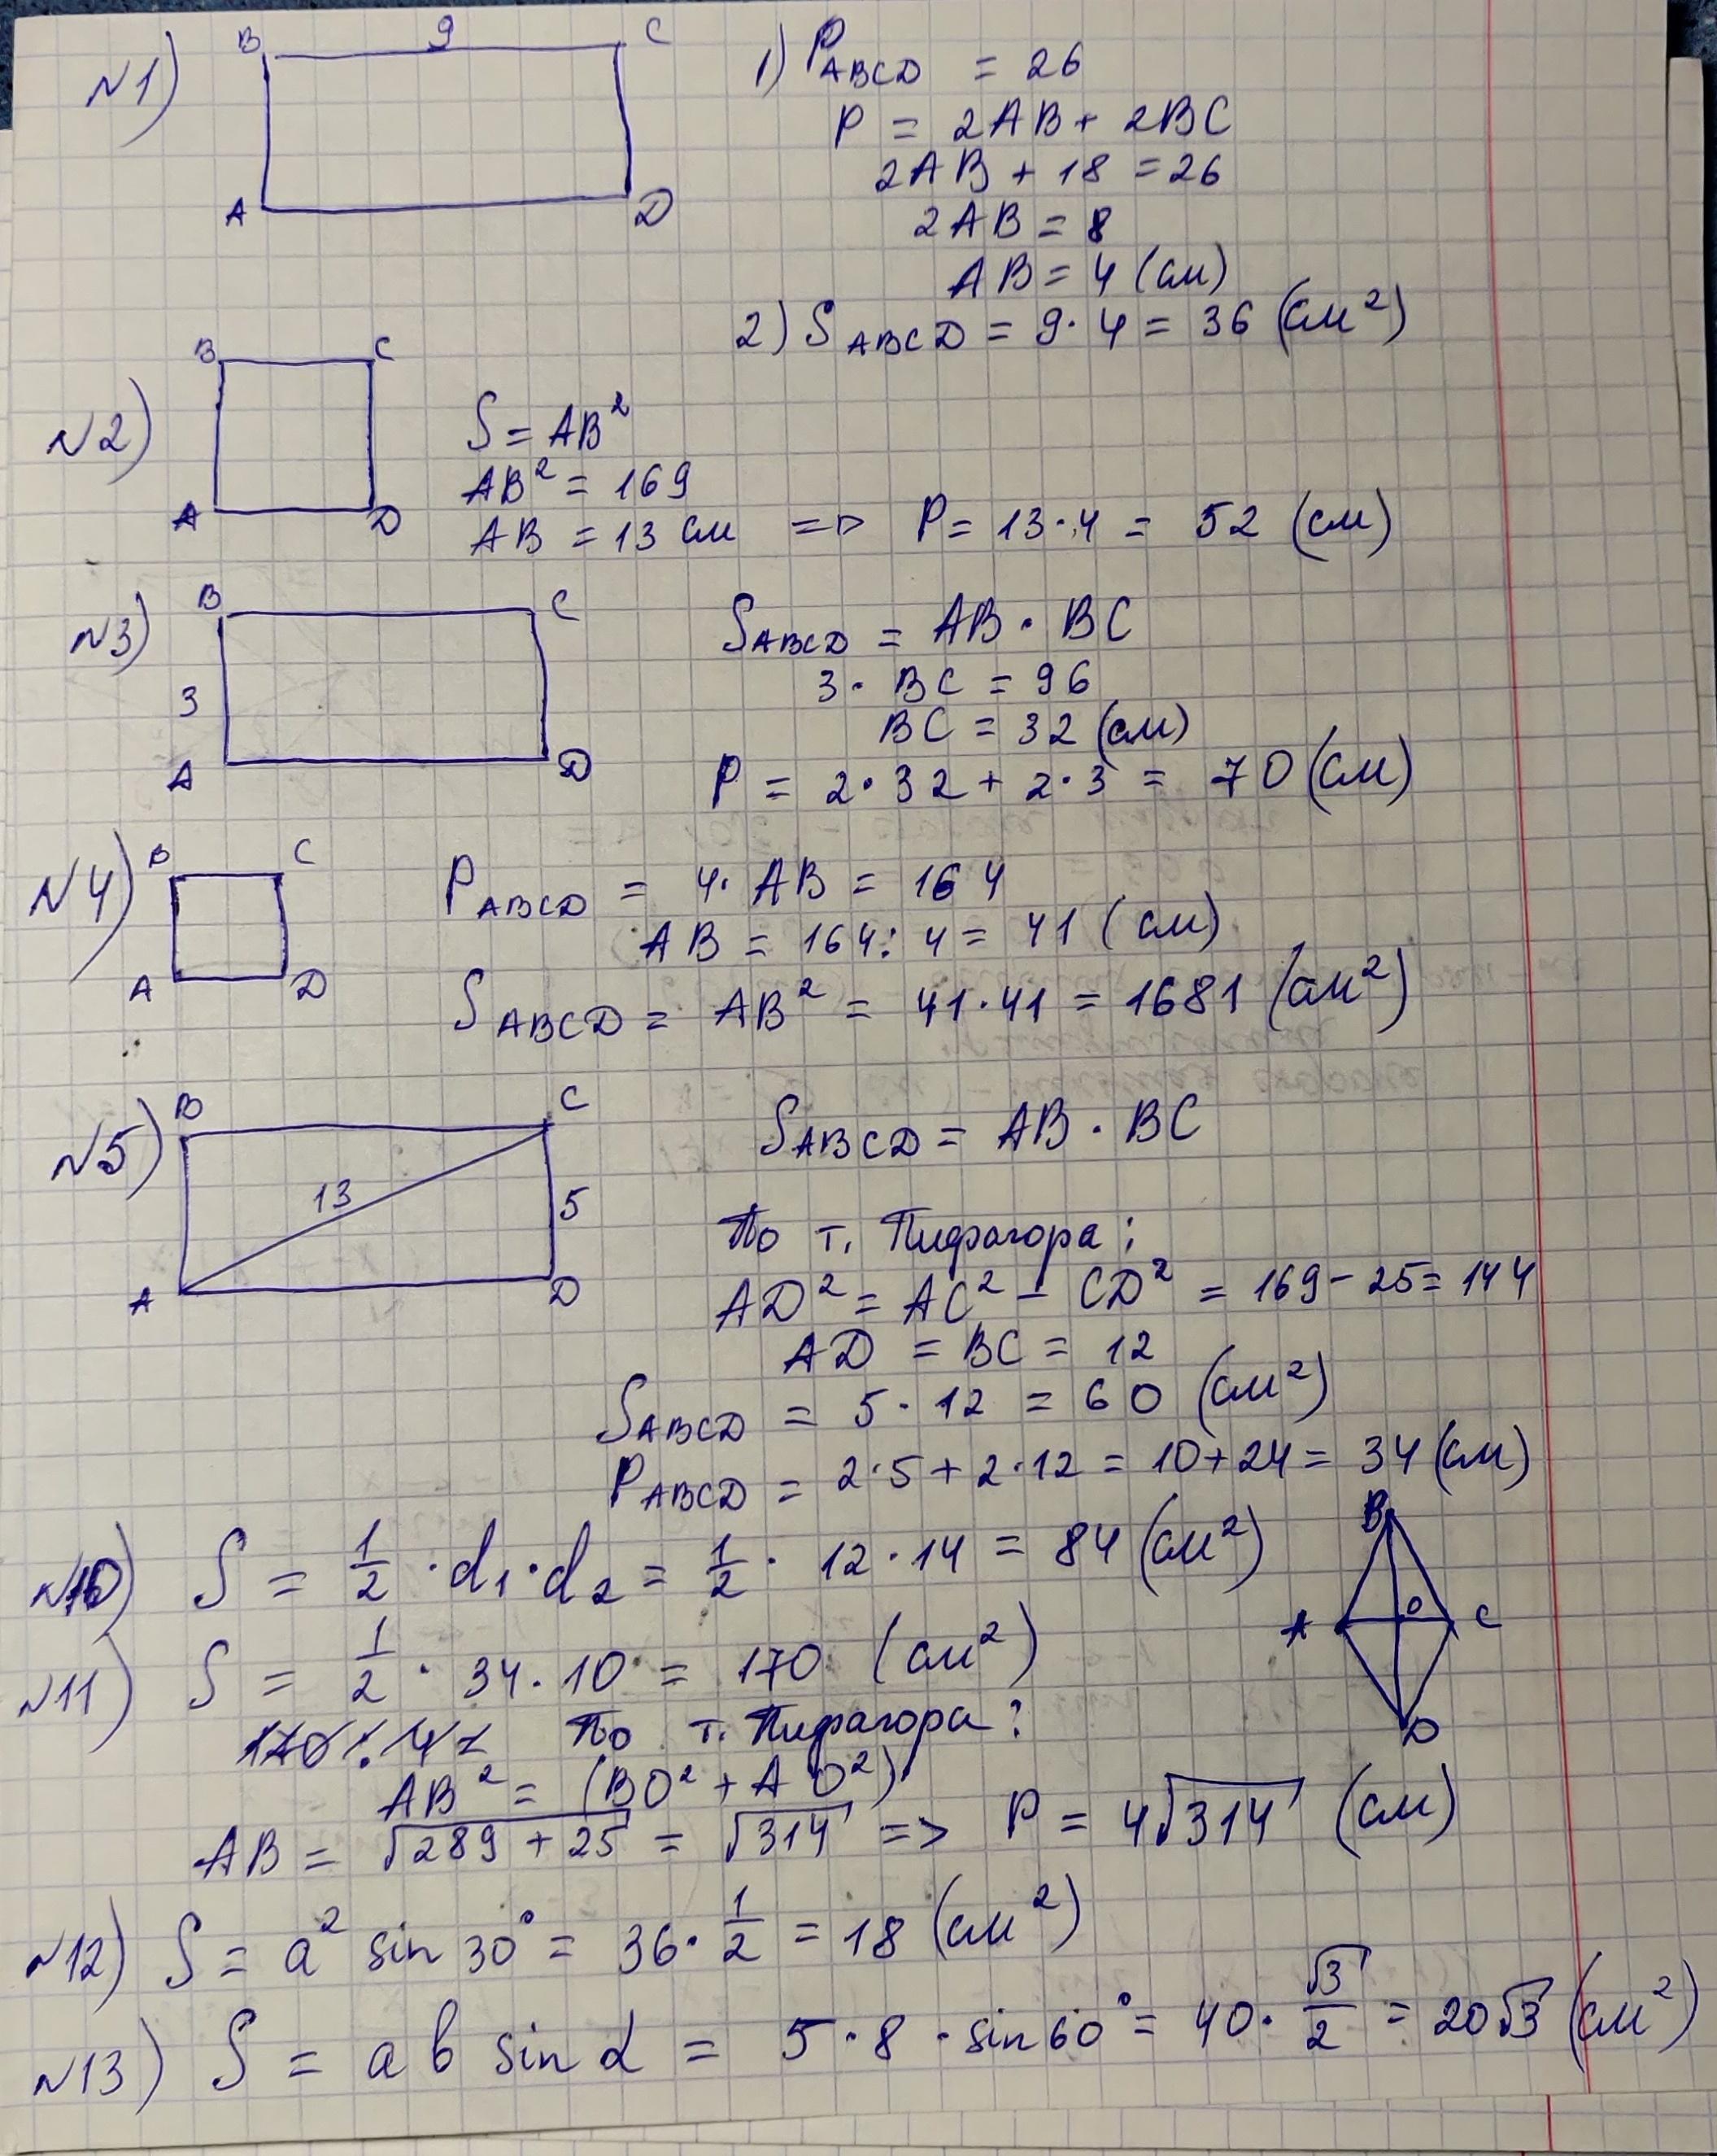 N1) B 9 C
A D
1) P_ABCD = 26
P = 2AB + 2BC
2AB + 18 = 26
2AB = 8
AB = 4 (см)
2) S_ABCD = 9·4 = 36 (см²)
N2) B C
A D
S = AB²
AB² = 169
AB = 13 см => P = 13·4 = 52 (см)
N3) B C
3
A D
S_ABCD = AB · BC
3 · BC = 96
BC = 32 (см)
P = 2·32 + 2·3 = 70 (см)
N4) B C
A D
P_ABCD = 4· AB = 164
AB = 164 : 4 = 41 (см)
S_ABCD = AB² = 41·41 = 1681 (см²)
N5) B C
13 5
A D
S_ABCD = AB · BC
По т. Пифагора:
AD² = AC² – CD² = 169 – 25 = 144
AD = BC = 12
S_ABCD = 5 · 12 = 60 (см²)
P_ABCD = 2·5 + 2·12 = 10 + 24 = 34 (см)
N10) S = 1/2 · d₁ · d₂ = 1/2 · 12 · 14 = 84 (см²)
B
A O C
D
N11) S = 1/2 · 34 · 10 = 170 (см²)
170 : 4 = По т. Пифагора:
AB² = (BO² + AO²)
AB = √289 + 25 = √314 => P = 4√314 (см)
N12) S = a² sin 30° = 36 · 1/2 = 18 (см²)
N13) S = a b sin α = 5 · 8 · sin 60° = 40 · √3/2 = 20√3 (см²)